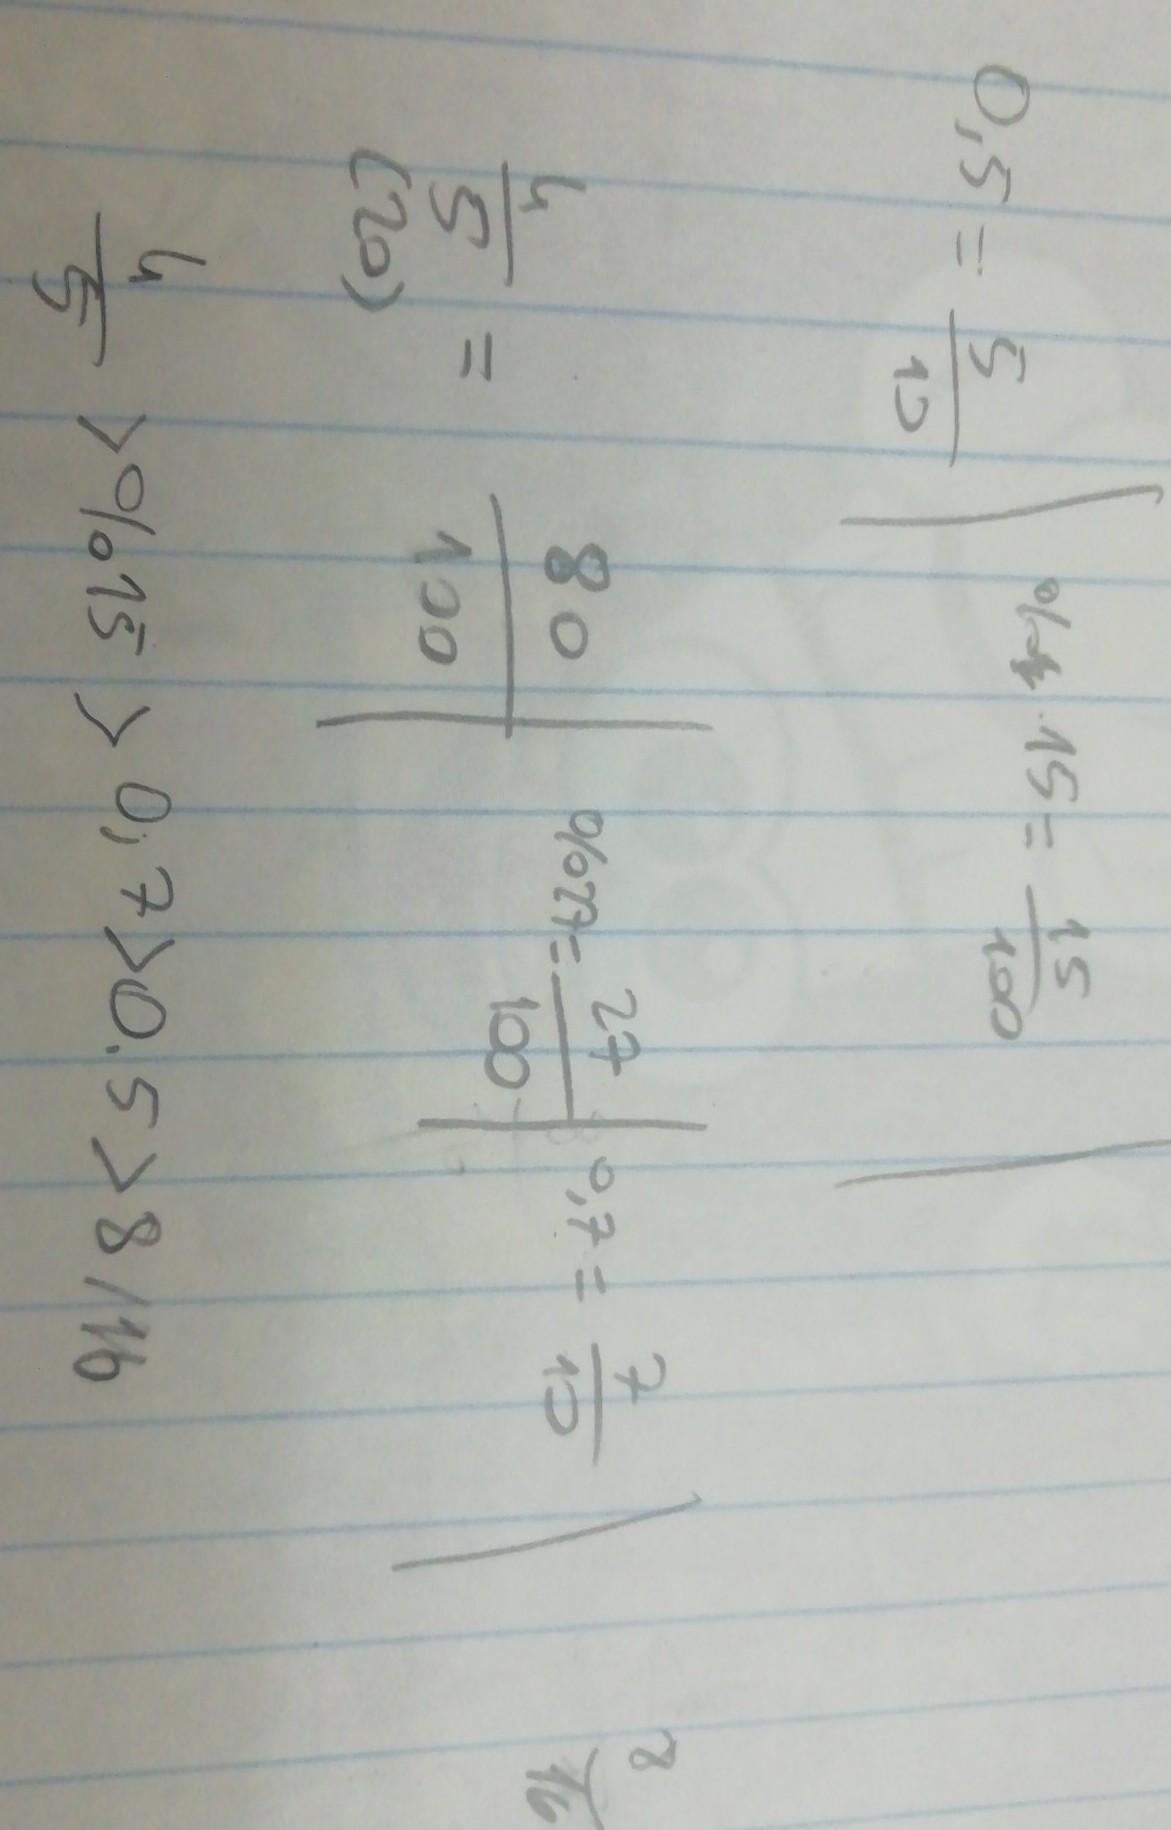 0,5 = 5/10 | % 15 = 15/100 |
4/5 = 80/100 | %27 = 27/100 | 0,7 = 7/10 | 8/16
(20)
4/5 > %15 > 0,7 > 0.5 > 8/16